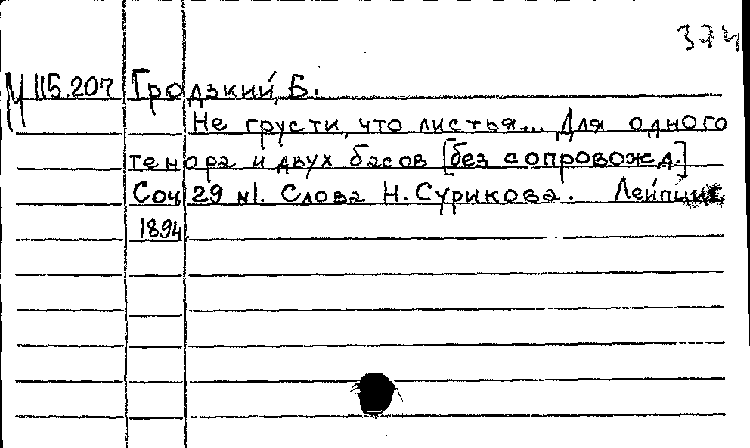 374
М 115.207 Гродзкий, Б.
Не грусти, что листья... Для одного
тенора и двух басов [без сопровожд.]
Соч 29 №1. Слова Н. Сурикова. Лейпциг
1894